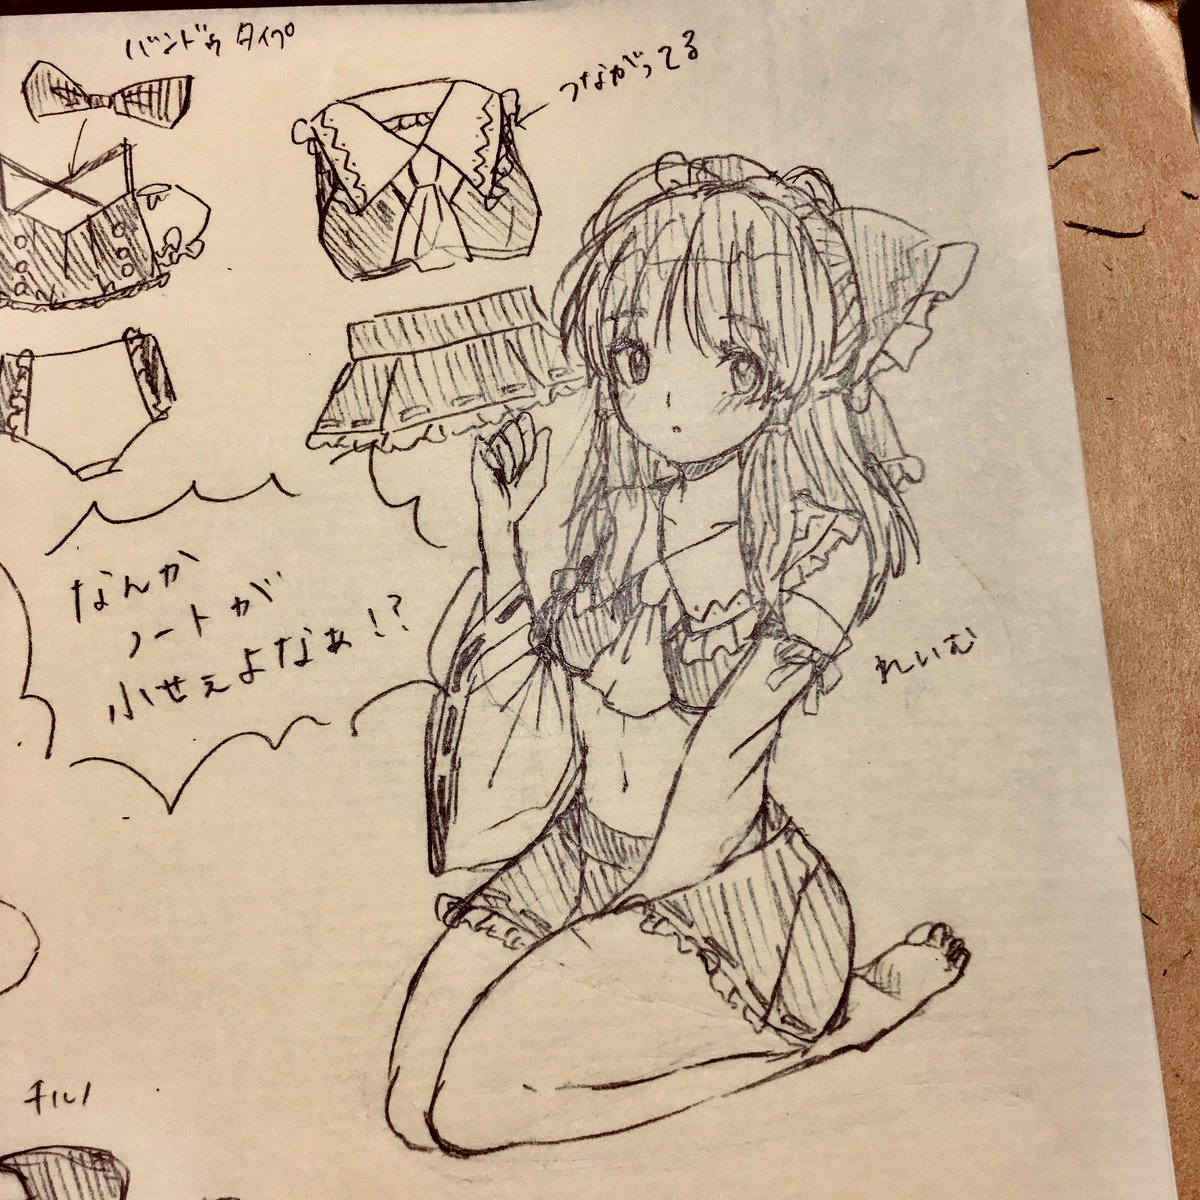 バンドゥタイプ
つながってる
なんか
ノートが
小せぇよなぁ!?
れいむ
チルノ